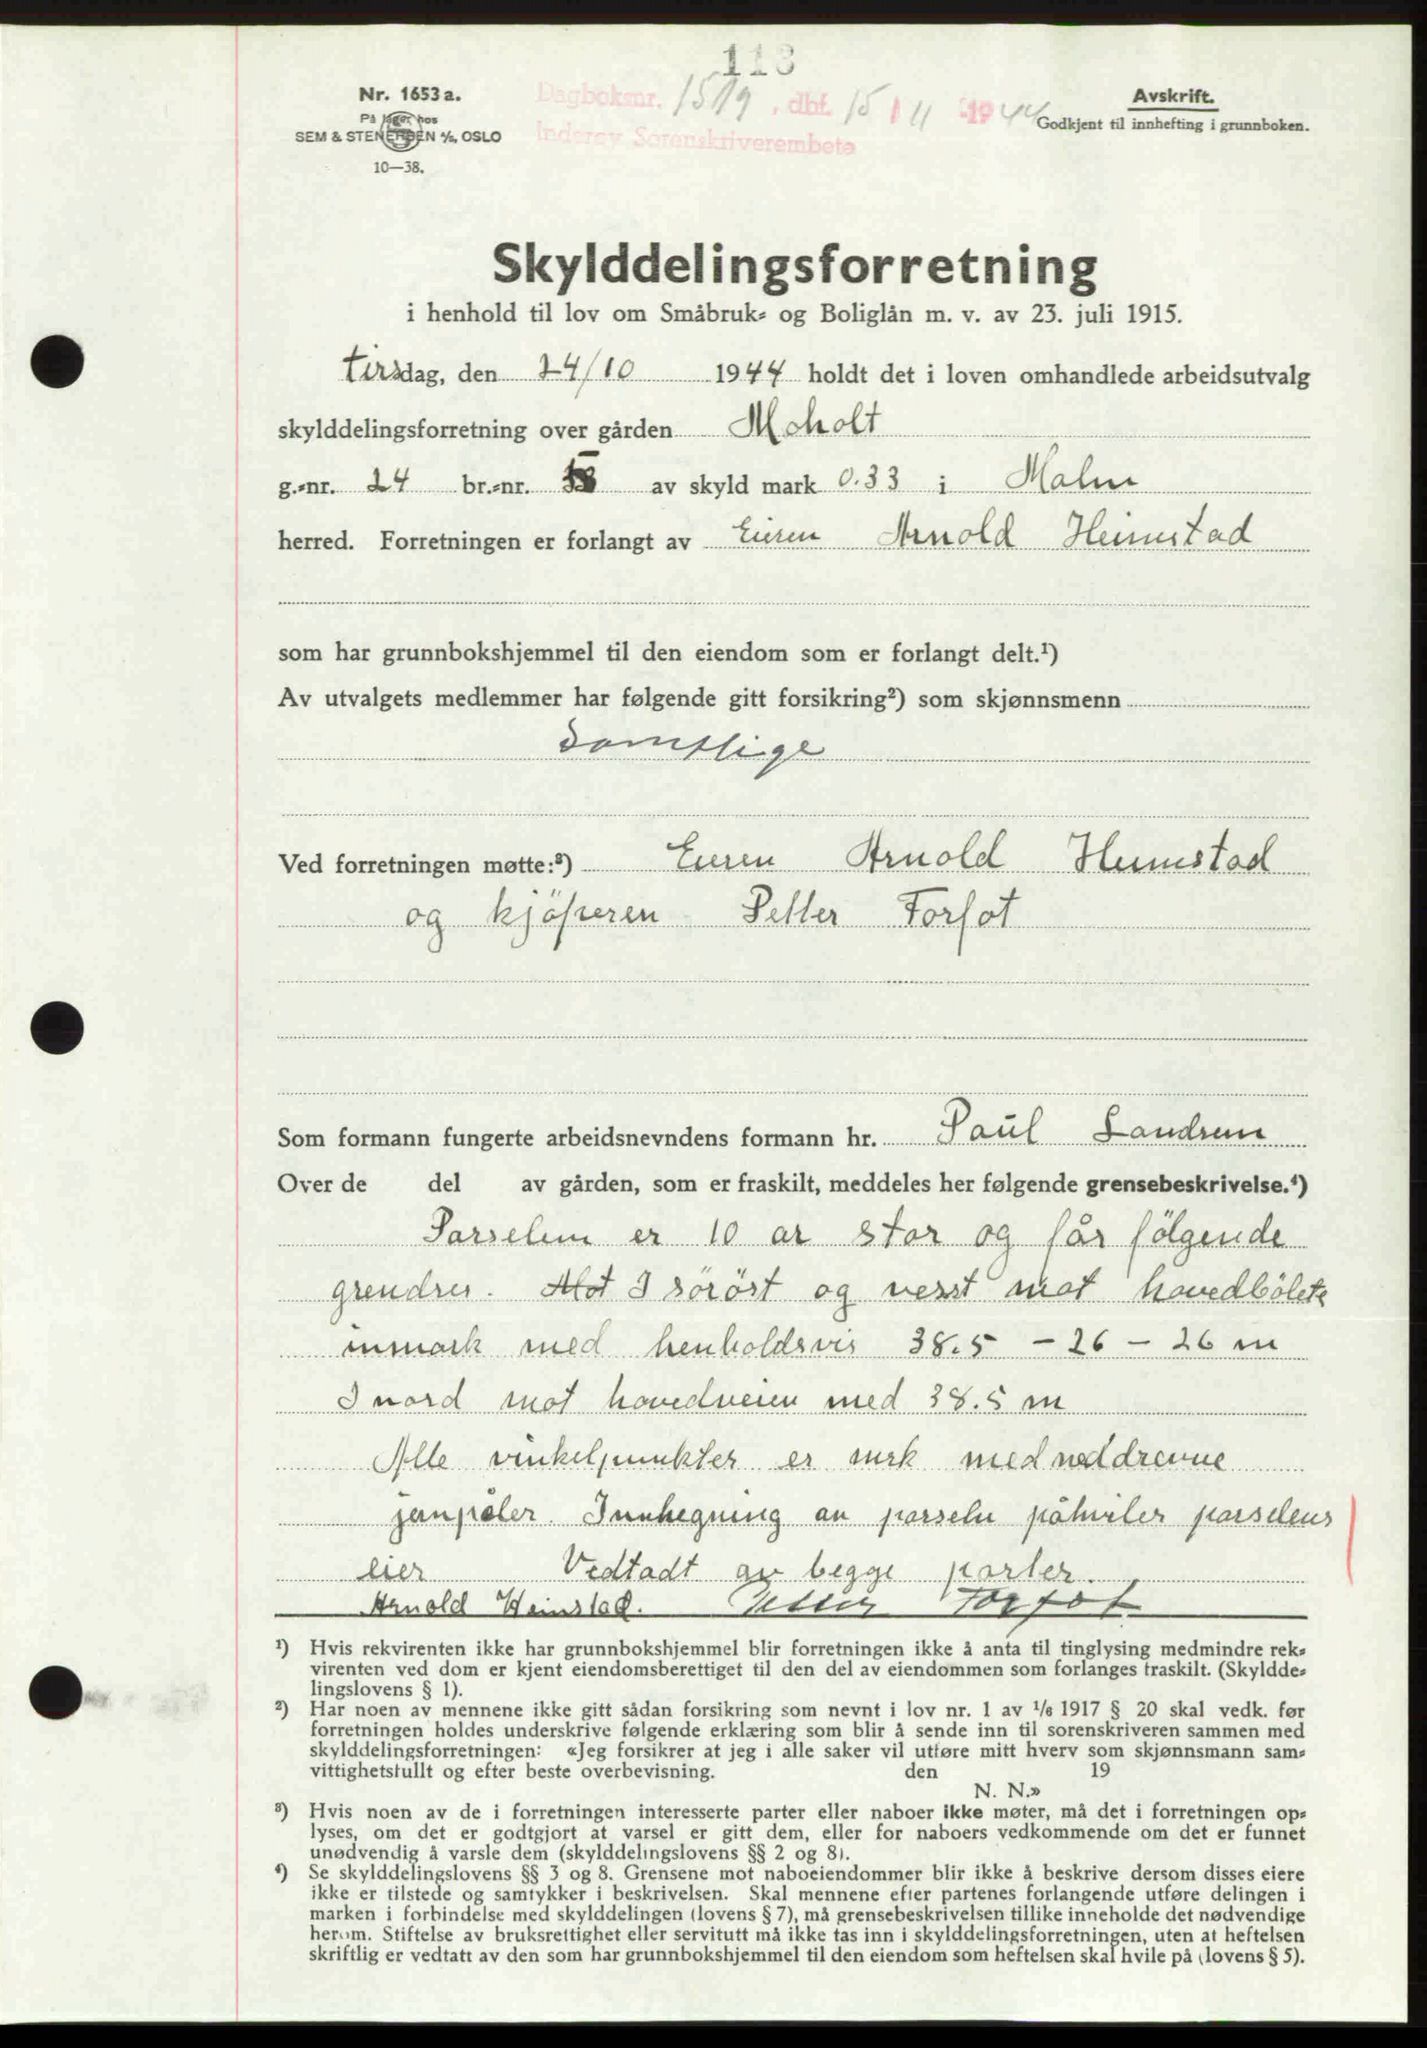 113
Nr. 1653 a.
På lager hos
SEM & STENERSEN A/S, OSLO
10—38.
Dagboksnr. 1519, dbf. 15/11 1944
Inderøy Sorenskriverembete
Avskrift.
Godkjent til innhefting i grunnboken.
Skylddelingsforretning
i henhold til lov om Småbruk- og Boliglån m. v. av 23. juli 1915.
tirsdag, den 24/10 1944 holdt det i loven omhandlede arbeidsutvalg
skylddelingsforretning over gården Moholt
g.-nr. 24 br.-nr. av skyld mark 0.33 i Malm
herred. Forretningen er forlangt av Eieren Arnold Heimstad
som har grunnbokshjemmel til den eiendom som er forlangt delt.¹)
Av utvalgets medlemmer har følgende gitt forsikring²) som skjønnsmenn
Samtlige
Ved forretningen møtte:³) Eieren Arnold Heimstad
og kjöperen Petter Forfot
Som formann fungerte arbeidsnevndens formann hr. Paul Landsem
Over de del av gården, som er fraskilt, meddeles her følgende grensebeskrivelse.⁴)
Parselen er 10 ar stor og får fölgende
grendser. Mot I söröst og vesst mot hovedbölets
inmark med henholdsvis 38.5 - 26 - 26 m
I nord mot hovedveien med 38.5 m
Alle vinkelpunkter er merk med neddrevne
jernpåler. Innhegning av parseln påhviler parselens
eier Vedtadt av begge parter.
Arnold Heimstad. Petter Forfot
¹) Hvis rekvirenten ikke har grunnbokshjemmel blir forretningen ikke å anta til tinglysing medmindre rek-
virenten ved dom er kjent eiendomsberettiget til den del av eiendommen som forlanges fraskilt. (Skyldde-
lingslovens § 1).
²) Har noen av mennene ikke gitt sådan forsikring som nevnt i lov nr. 1 av 1/6 1917 § 20 skal vedk. før
forretningen holdes underskrive følgende erklæring som blir å sende inn til sorenskriveren sammen med
skylddelingsforretningen: «Jeg forsikrer at jeg i alle saker vil utføre mitt hverv som skjønnsmann sam-
vittighetsfullt og efter beste overbevisning. den 19
N. N.»
³) Hvis noen av de i forretningen interesserte parter eller naboer ikke møter, må det i forretningen op-
lyses, om det er godtgjort at varsel er gitt dem, eller for naboers vedkommende om det er funnet
unødvendig å varsle dem (skylddelingslovens §§ 2 og 8).
⁴) Se skylddelingslovens §§ 3 og 8. Grensene mot naboeiendommer blir ikke å beskrive dersom disses eiere
ikke er tilstede og samtykker i beskrivelsen. Skal mennene efter partenes forlangende utføre delingen i
marken i forbindelse med skylddelingen (lovens § 7), må grensebeskrivelsen tillike inneholde det nødvendige
herom. Stiftelse av bruksrettighet eller servitutt må ikke tas inn i skylddelingsforretningen, uten at heftelsen
skriftlig er vedtatt av den som har grunnbokshjemmel til den eiendom som heftelsen skal hvile på (lovens § 5).